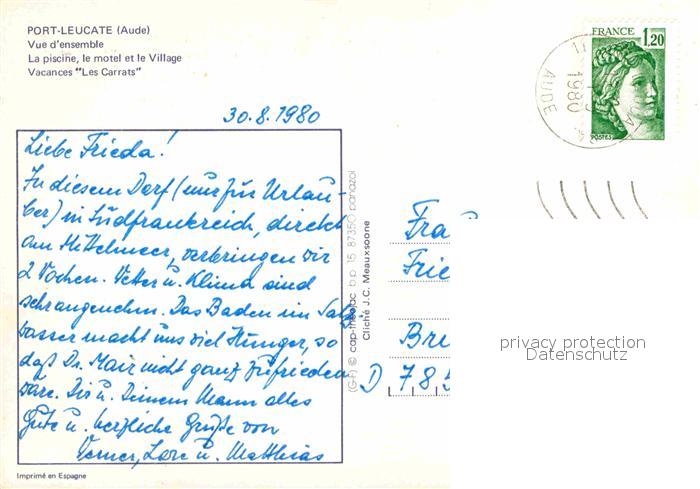 PORT-LEUCATE (Aude)
Vue d'ensemble
La piscine, le motel et le Village
Vacances "Les Carrats"
FRANCE
1,20
POSTES
AUDE
1980
30.8.1980
Liebe Frieda!
In diesem Dorf (nur für Urlau-
ber) in Südfrankreich, direkt
am Mittelmeer, verbringen wir
2 Wochen. Wetter u. Klima sind
sehr angenehm. Das Baden im Salz-
wasser macht uns viel Hunger, so
daß Dr. Mair nicht ganz zufrieden
wäre. Dir u. Deinem Mann alles
Gute u. herzliche Grüße von
Werner, Lore u. Matthias
(G-F) © cap-theojac b.p. 15 87350 panazol
Cliché J.C. Meauxsoone
Frau
Frie
Bre
D 785
privacy protection
Datenschutz
Imprimé en Espagne